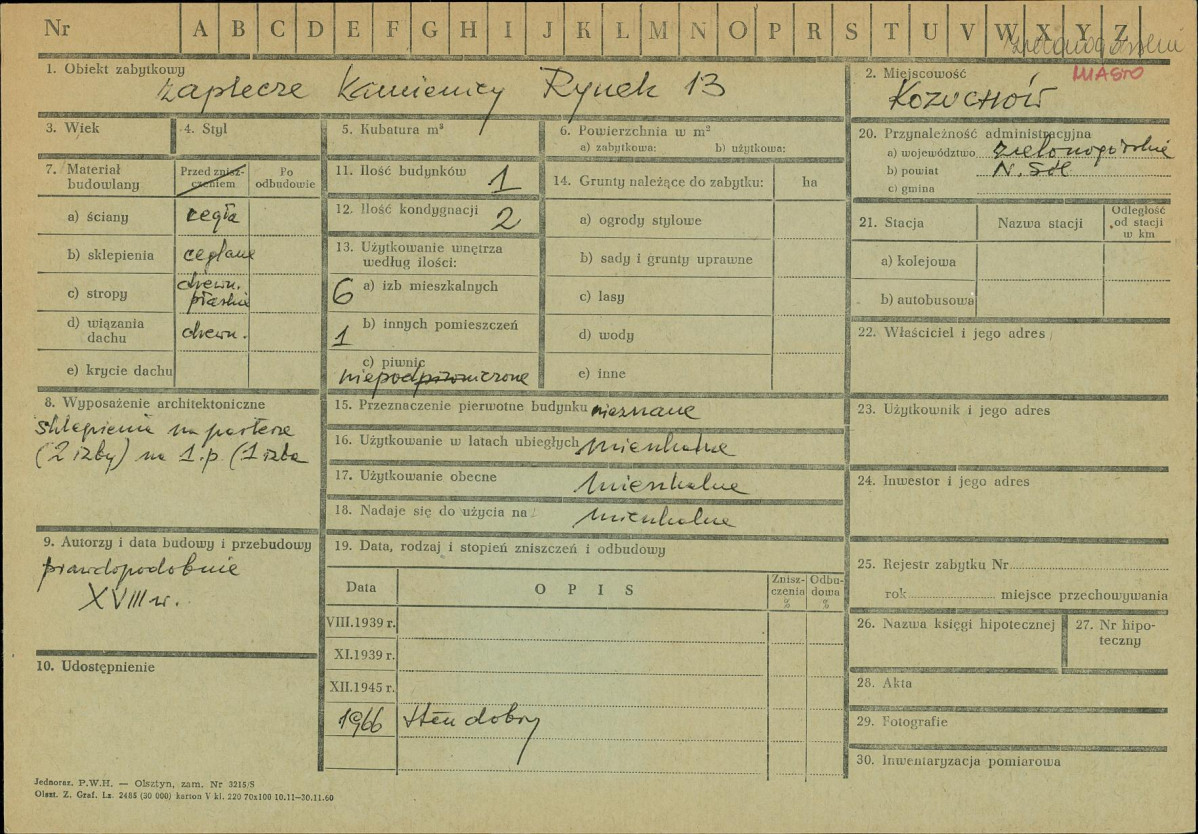 Nr A B C D E F G H I J K L M N O P R S T U V W X Y Z
zielonogórskie
MIASTO
1. Obiekt zabytkowy
zaplecze Kamienicy Rynek 13
2. Miejscowość
KOŻUCHÓW
3. Wiek
4. Styl
5. Kubatura m³
6. Powierzchnia w m²
a) zabytkowa: b) użytkowa:
20. Przynależność administracyjna
a) województwo zielonogórskie
b) powiat N. Sól
c) gmina
7. Materiał budowlany
Przed znisz-
czeniem
Po
odbudowie
a) ściany cegła
b) sklepienia ceglane
c) stropy drewn.
płaskie
d) wiązania
dachu drewn.
e) krycie dachu
11. Ilość budynków 1
12. Ilość kondygnacji 2
13. Użytkowanie wnętrza
według ilości:
a) izb mieszkalnych 6
b) innych pomieszczeń 1
c) piwnic
niepodpiwniczone
14. Grunty należące do zabytku: ha
a) ogrody stylowe
b) sady i grunty uprawne
c) lasy
d) wody
e) inne
21. Stacja Nazwa stacji
Odległość
od stacji
w km
a) kolejowa
b) autobusowa
22. Właściciel i jego adres
8. Wyposażenie architektoniczne
sklepienie na parterze
(2 izby) na 1.p. (1 izba
15. Przeznaczenie pierwotne budynku nieznane
16. Użytkowanie w latach ubiegłych mieszkalne
17. Użytkowanie obecne mieszkalne
18. Nadaje się do użycia na: mieszkalne
23. Użytkownik i jego adres
24. Inwestor i jego adres
9. Autorzy i data budowy i przebudowy
prawdopodobnie
XVIII w.
10. Udostępnienie
19. Data, rodzaj i stopień zniszczeń i odbudowy
Data OPIS
Znisz-
czenia
%
Odbu-
dowa
%
VIII.1939 r.
XI.1939 r.
XII.1945 r.
1966 stan dobry
25. Rejestr zabytku Nr
rok miejsce przechowywania
26. Nazwa księgi hipotecznej
27. Nr hipo-
teczny
28. Akta
29. Fotografie
30. Inwentaryzacja pomiarowa
Jednoraz. P.W.H. — Olsztyn, zam. Nr 3215/S
Olszt. Z. Graf. Lz. 2485 (30 000) karton V kl. 220 70x100 10.11—30.11.60